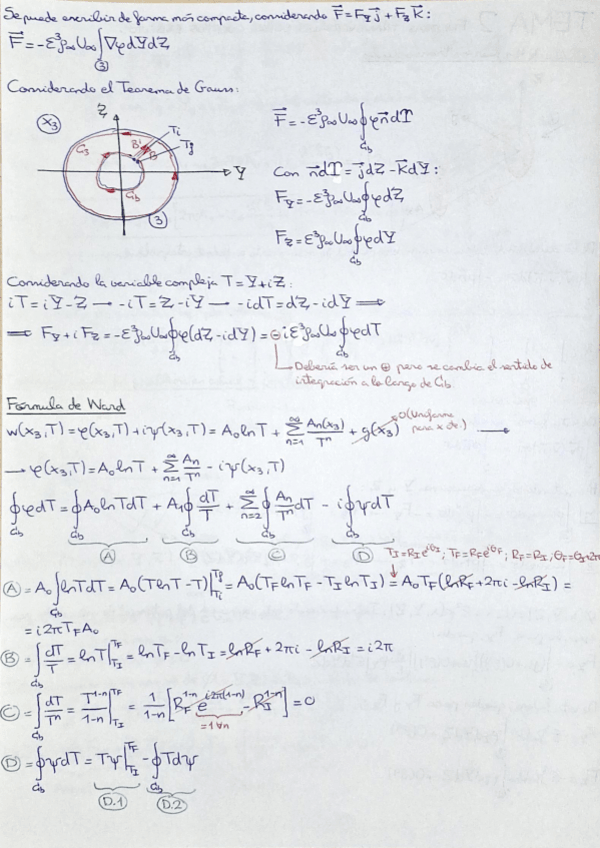 Se puede escribir de forma más compacta, considerando F⃗ = F_Y j⃗ + F_Z k⃗ :
F⃗ = -ε³ρ∞U∞ ∫₃ ∇φdYdZ
Considerando el Teorema de Gauss:
x₃
Z
Y
C₃
Bi
B
Ti
Tf
Cb
3
F⃗ = -ε³ρ∞U∞ ∮ φn⃗dT
Con n⃗dT = j⃗dZ - k⃗dY :
F_Y = -ε³ρ∞U∞ ∮_Cb φdZ
F_Z = ε³ρ∞U∞ ∮_Cb φdY
Considerando la variable compleja T = Y + iZ :
iT = iY - Z → -iT = Z - iY → -idT = dZ - idY ⟹
⟹ F_Y + iF_Z = -ε³ρ∞U∞ ∮_Cb φ(dZ - idY) = ⊖iε³ρ∞U∞ ∮_Cb φdT
Debería ser un ⊕ pero se cambia el sentido de
integración a lo largo de Cb
Fórmula de Ward
w(x₃,T) = φ(x₃,T) + iψ(x₃,T) = A₀lnT + Σ_{n=1}^∞ An(x₃)/Tⁿ + g(x₃) 0 (Uniforme para x cte.) →
→ φ(x₃,T) = A₀lnT + Σ_{n=1}^∞ An/Tⁿ - iψ(x₃,T)
∮_Cb φdT = ∮_Cb A₀lnTdT + A₁∮_Cb dT/T + Σ_{n=2}^∞ ∮_Cb An/Tⁿ dT - i∮_Cb ψdT
A B C D T_I = R_I e^{iθ_I} ; T_F = R_F e^{iθ_F} ; R_F = R_I ; θ_F = θ_I + 2π
A = A₀ ∫_Cb lnTdT = A₀(TlnT - T)|_{Ti}^{TF} = A₀(T_F lnT_F - T_I lnT_I) = A₀T_F(lnR_F + 2πi - lnR_I) =
= i2πT_F A₀
B = ∫_Cb dT/T = lnT|_{TI}^{TF} = lnT_F - lnT_I = lnR_F + 2πi - lnR_I = i2π
C = ∫_Cb dT/Tⁿ = T^{1-n}/(1-n)|_{TI}^{TF} = 1/(1-n) [R_F^{1-n} e^{i2π(1-n)} - R_I^{1-n}] = 0
=1 ∀n
D = ∮_Cb ψdT = Tψ|_{TI}^{TF} - ∮_Cb Tdψ
D.1 D.2